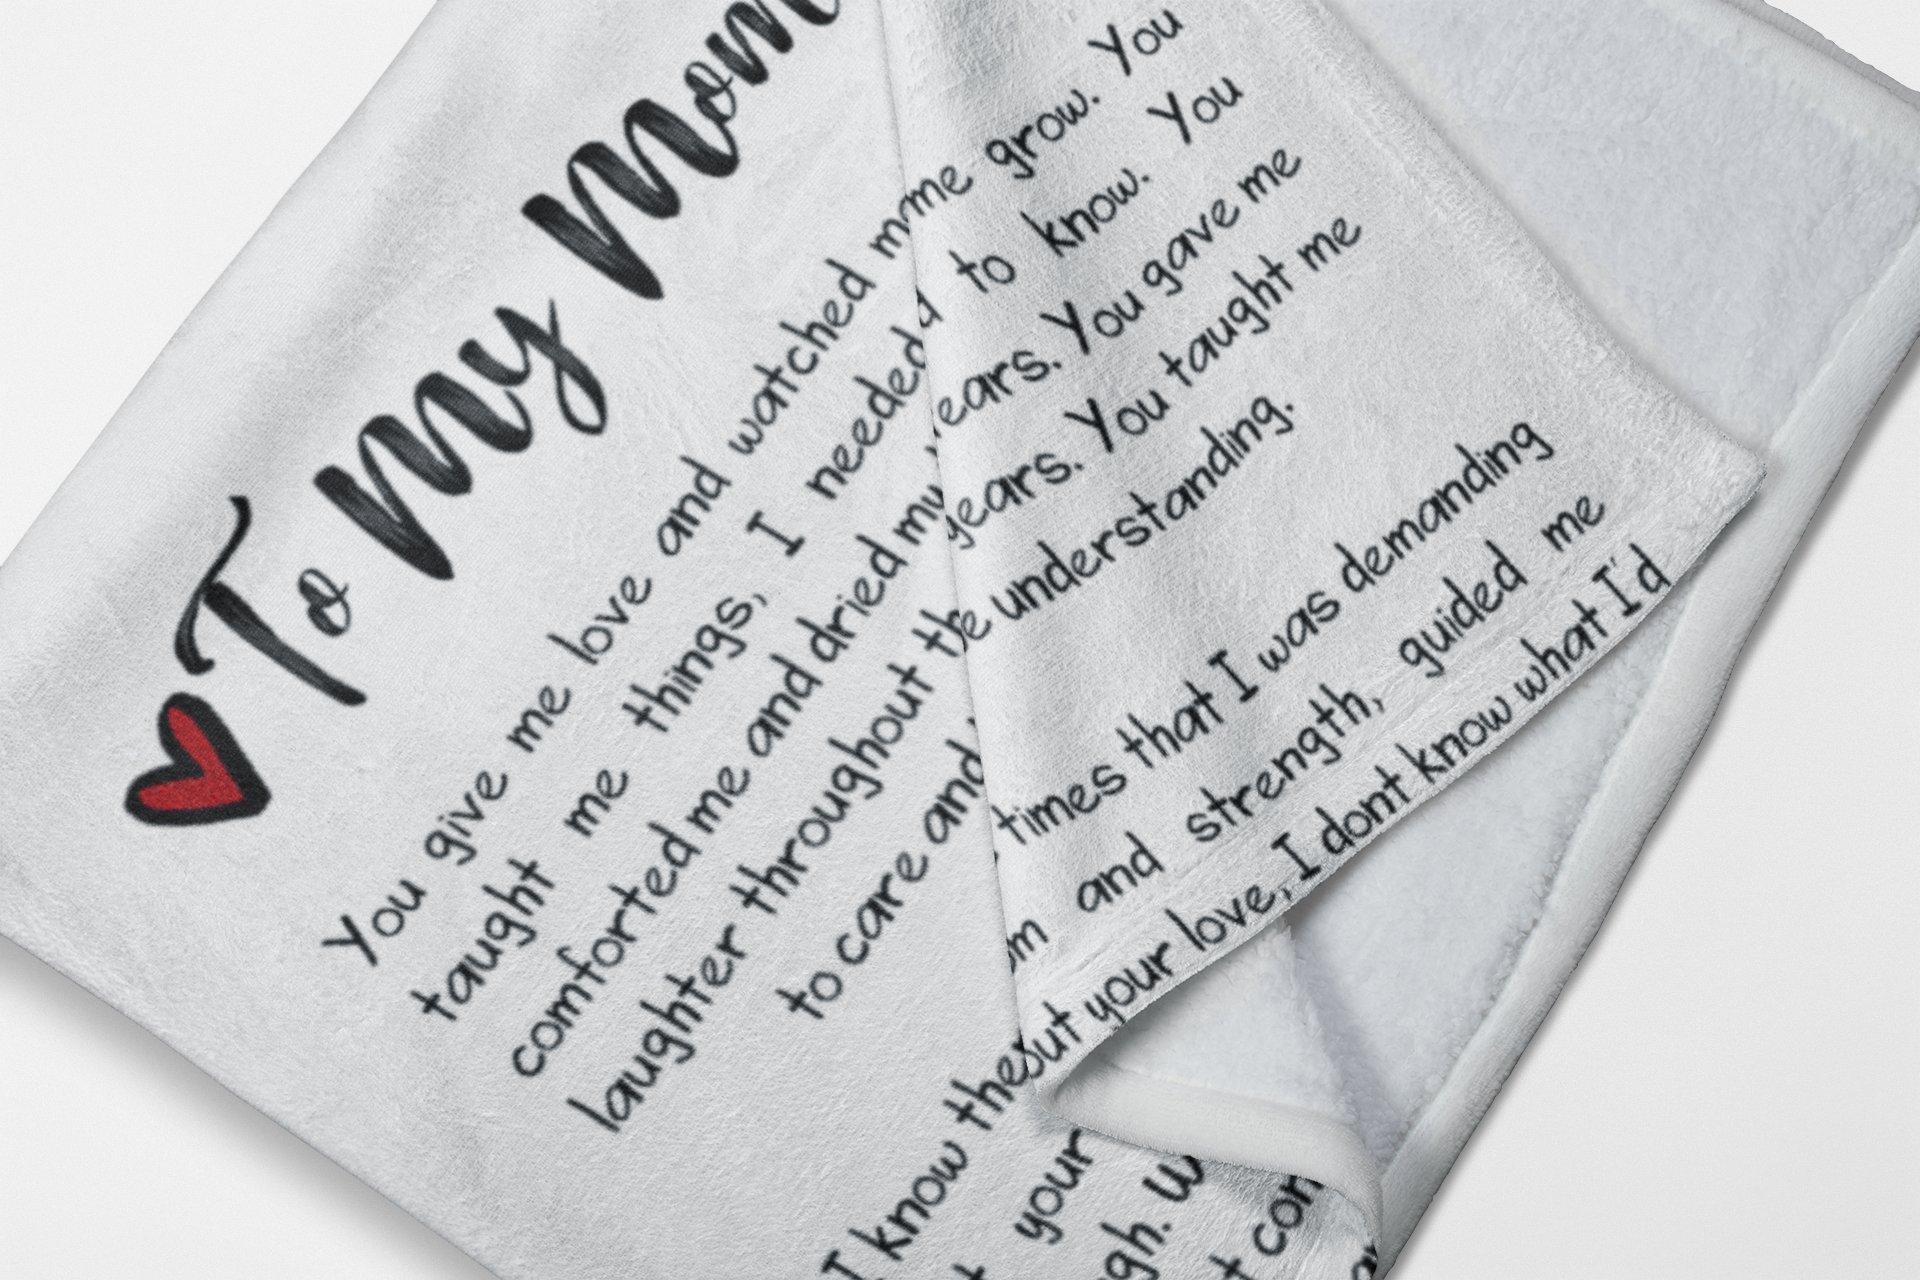 To My Mom
You give me love and watched me grow. You
taught me things, I needed to know. You
comforted me and dried my tears. You gave me
laughter throughout the years. You taught me
to care and understanding.
I know the times that I was demanding
your and strength, guided me
out your love, I dont know what I'd